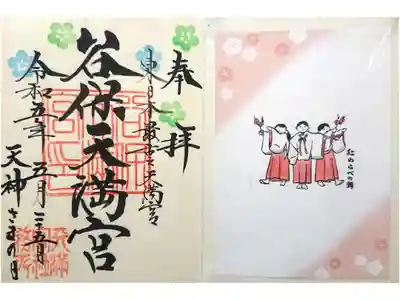 奉拝
東日本最古之天満宮
谷保天満宮
令和五年五月二十五日
天神さまの日
紅わらべの舞